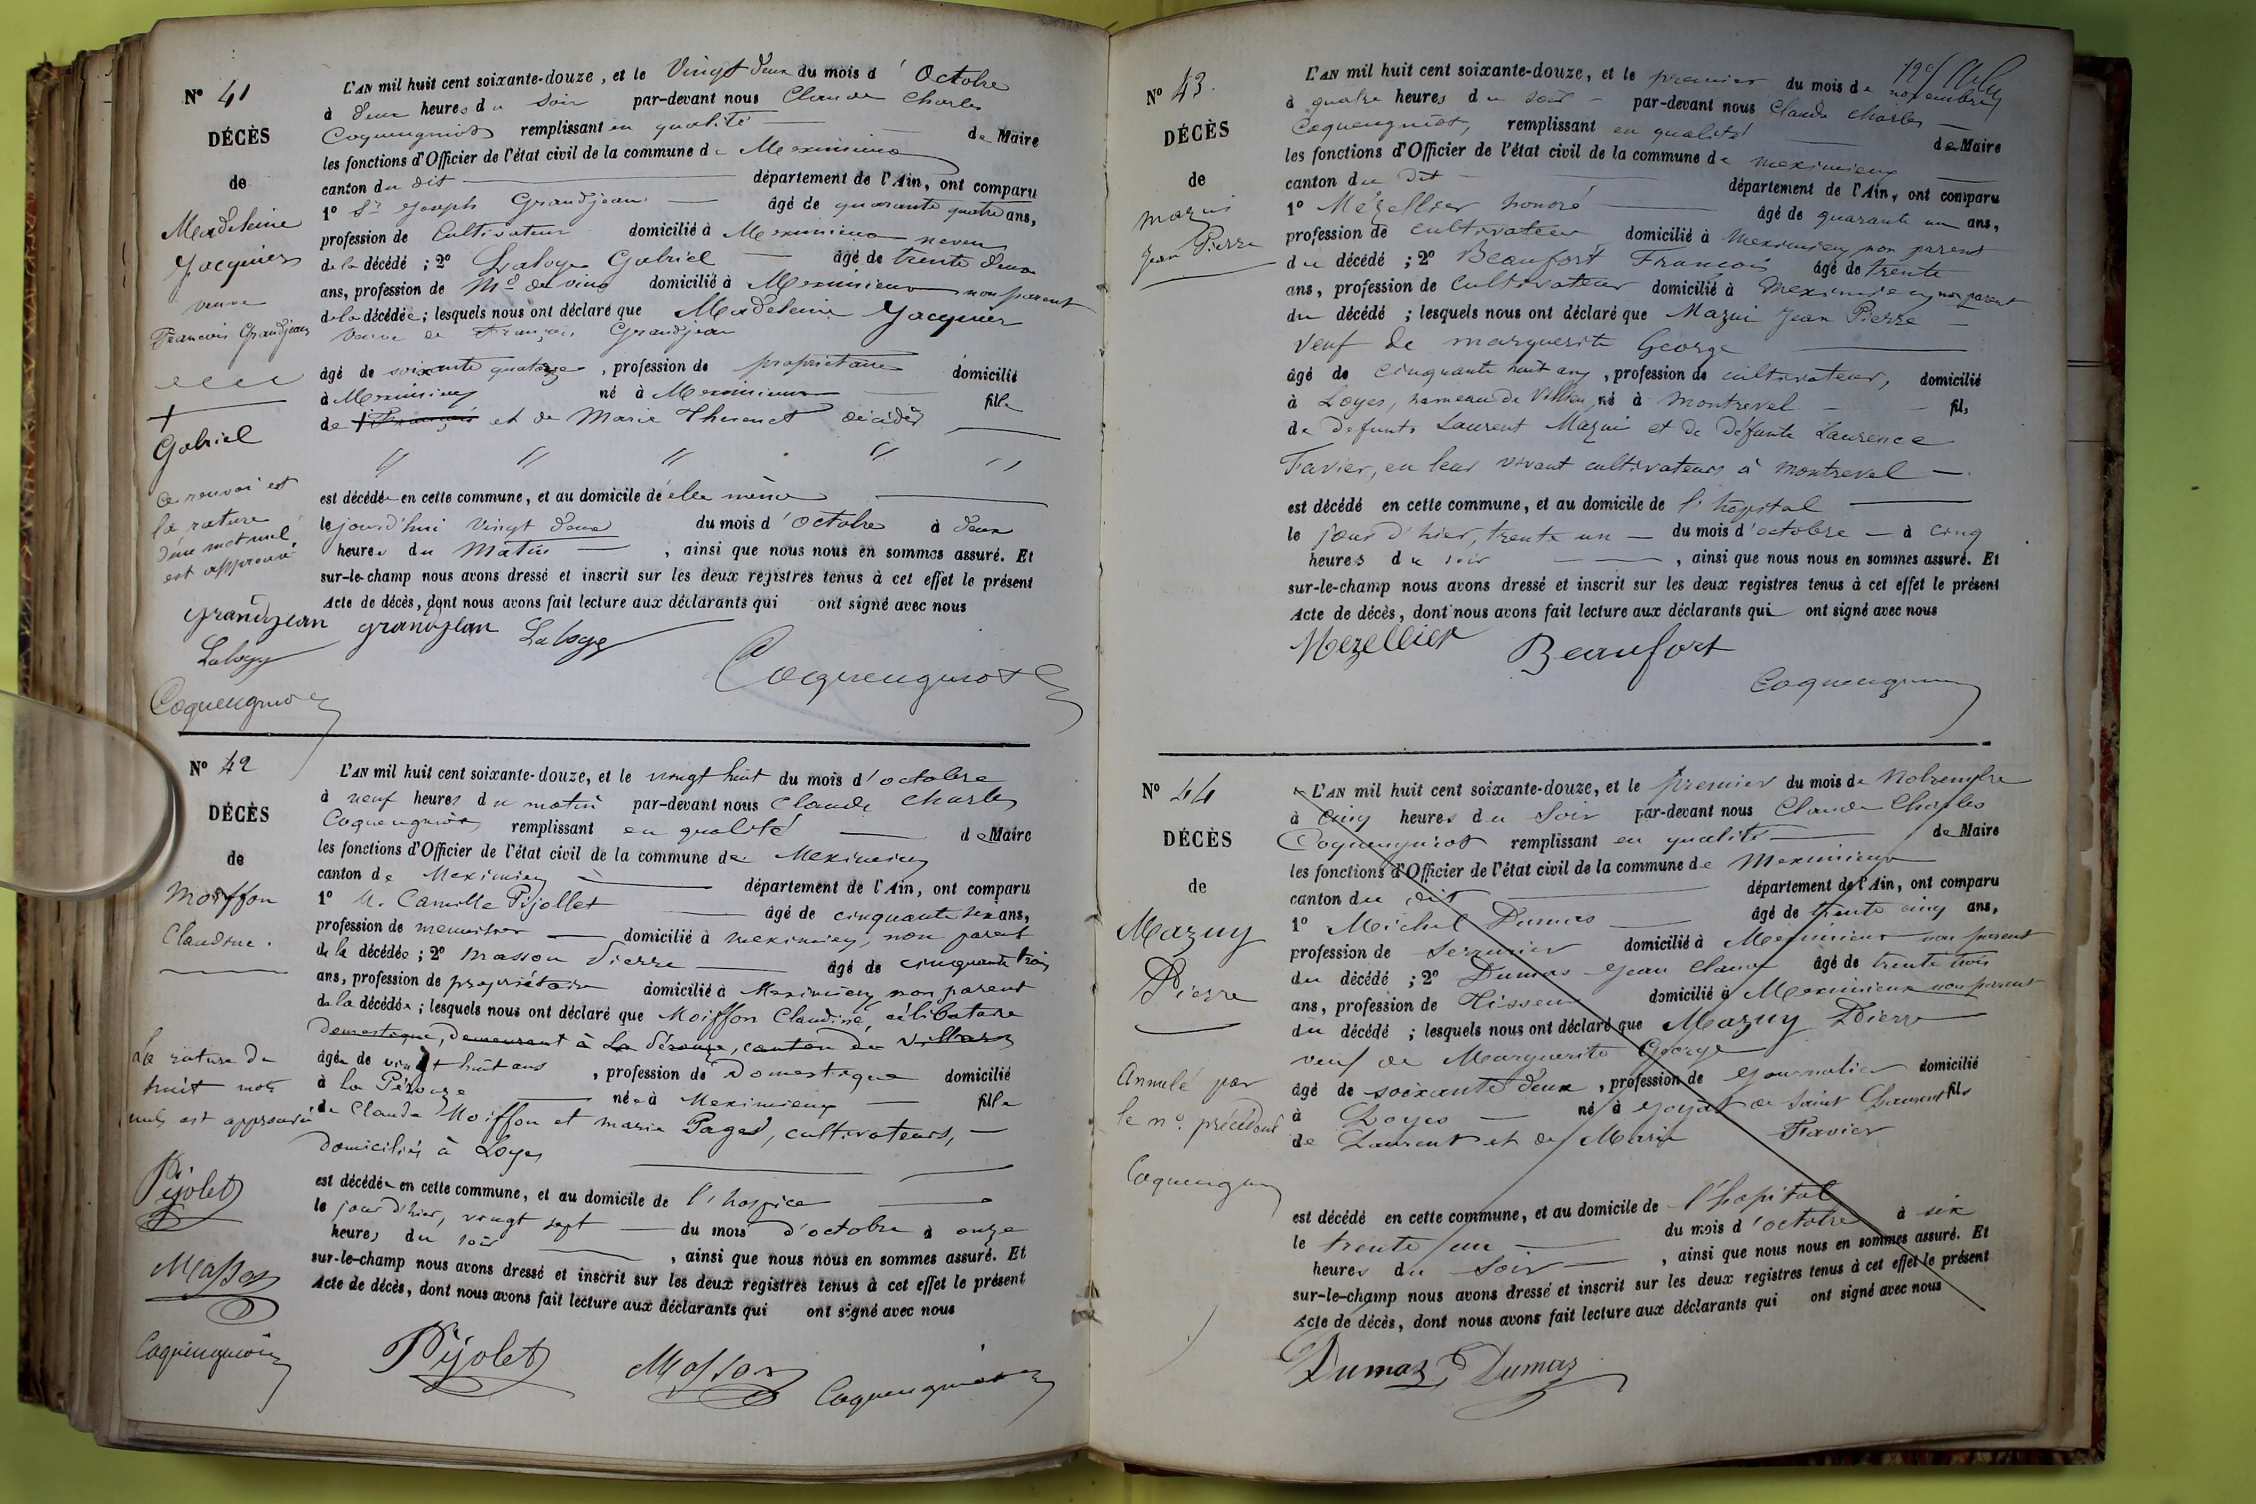 N° 41
DÉCÈS
de
Madeleine
Jacquier
veuve
François Grandjean
+
Gabriel
Ce renvoi est
la rature
d'un mot nul
est approuvé
L'AN mil huit cent soixante-douze, et le Vingt deux du mois d'Octobre
à deux heures du soir par-devant nous Claude Charles
Coquengniot remplissant en qualité de Maire
les fonctions d'Officier de l'état civil de la commune de Meximieux
canton du dit département de l'Ain, ont comparu
1° Sr Joseph Grandjean âgé de quarante quatre ans,
profession de Cultivateur domicilié à Meximieux neveu
de la décédé ; 2° Laloge Gabriel âgé de trente deux
ans, profession de Md de vins domicilié à Meximieux non parent
de la décédée ; lesquels nous ont déclaré que Madeleine Jacquier
veuve de François Grandjean
âgé de soixante quatorze, profession de propriétaire domicilié
à Meximieux né à Meximieux fille
de + François et de Marie Thevenet décédés
" " " " "
est décédée en cette commune, et au domicile de elle même
le jourd'hui Vingt deux du mois d'Octobre à deux
heures du Matin, ainsi que nous nous en sommes assuré. Et
sur-le-champ nous avons dressé et inscrit sur les deux registres tenus à cet effet le présent
Acte de décès, dont nous avons fait lecture aux déclarants qui ont signé avec nous
Grandjean Grandjean Laloge
Laloge
Coquengniot
Coquengniot
N° 42
DÉCÈS
de
Moiffon
Claudine.
La rature de
huit mots
nuls est approuvée
Pijolet
Masson
Coquengniot
L'AN mil huit cent soixante-douze, et le vingt huit du mois d'octobre
à neuf heures du matin par-devant nous Claude Charles
Coquengniot remplissant en qualité de Maire
les fonctions d'Officier de l'état civil de la commune de Meximieux
canton de Meximieux département de l'Ain, ont comparu
1° M. Camille Pijollet âgé de cinquante six ans,
profession de menuisier domicilié à meximieux, non parent
de la décédée ; 2° Masson Pierre âgé de cinquante trois
ans, profession de propriétaire domicilié à Meximieux non parent
de la décédée ; lesquels nous ont déclaré que Moiffon Claudine, célibataire
domestique, demeurant à La Pérouze, canton de Villars
âgée de vingt huit ans, profession de Domestique domicilié
à la Pérouze née à Meximieux fille
de Claude Moiffon et marie Pages, cultivateurs,
domiciliés à Loyes
est décédée en cette commune, et au domicile de l'hospice
le jour d'hier, vingt sept du mois d'octobre à onze
heures du soir, ainsi que nous nous en sommes assuré. Et
sur-le-champ nous avons dressé et inscrit sur les deux registres tenus à cet effet le présent
Acte de décès, dont nous avons fait lecture aux déclarants qui ont signé avec nous
Pijolet Masson Coquengniot
N° 43.
DÉCÈS
de
Mazui
Jean Pierre
L'AN mil huit cent soixante-douze, et le premier du mois de novembre
à quatre heures du soir par-devant nous Claude Charles
Coquengniot, remplissant en qualité de Maire
les fonctions d'Officier de l'état civil de la commune de meximieux
canton du dit département de l'Ain, ont comparu
1° Mézellier honoré âgé de quarante un ans,
profession de cultivateur domicilié à Meximieux non parent
du décédé ; 2° Beaufort François âgé de trente
ans, profession de Cultivateur domicilié à Meximieux non parent
du décédé ; lesquels nous ont déclaré que Mazui Jean Pierre
Veuf de marguerite George
âgé de cinquante huit ans, profession de cultivateur, domicilié
à Loyes, hameau de Villieu, né à Montrevel fils
de Defunts Laurent Mazui et de Défunte Laurence
Favier, en leur vivant cultivateurs à montrevel
est décédé en cette commune, et au domicile de l'hopital
le jour d'hier, trente un du mois d'octobre à cinq
heures du soir, ainsi que nous nous en sommes assuré. Et
sur-le-champ nous avons dressé et inscrit sur les deux registres tenus à cet effet le présent
Acte de décès, dont nous avons fait lecture aux déclarants qui ont signé avec nous
Mezellier Beaufort
Coquengniot
N° 44
DÉCÈS
de
Mazuy
Pierre
Annulé par
le n° précédent
Coquengniot
L'AN mil huit cent soixante-douze, et le premier du mois de Novembre
à cinq heures du soir par-devant nous Claude Charles
Coquengniot remplissant en qualité de Maire
les fonctions d'Officier de l'état civil de la commune de Meximieux
canton du dit département de l'Ain, ont comparu
1° Michel Dumas âgé de trente cinq ans,
profession de Serrurier domicilié à Meximieux non parent
du décédé ; 2° Dumas Jean Claude âgé de trente trois
ans, profession de Tisseur domicilié à Meximieux non parent
du décédé ; lesquels nous ont déclaré que Mazuy Pierre
veuf de Marguerite George
âgé de soixante deux, profession de Journalier domicilié
à Loyes né à Jayat de Saint Laurent fils
de Laurent et de Marie Favier
est décédé en cette commune, et au domicile de l'hopital
le trente un du mois d'octobre à six
heures du Soir, ainsi que nous nous en sommes assuré. Et
sur-le-champ nous avons dressé et inscrit sur les deux registres tenus à cet effet le présent
Acte de décès, dont nous avons fait lecture aux déclarants qui ont signé avec nous
Dumas Dumas